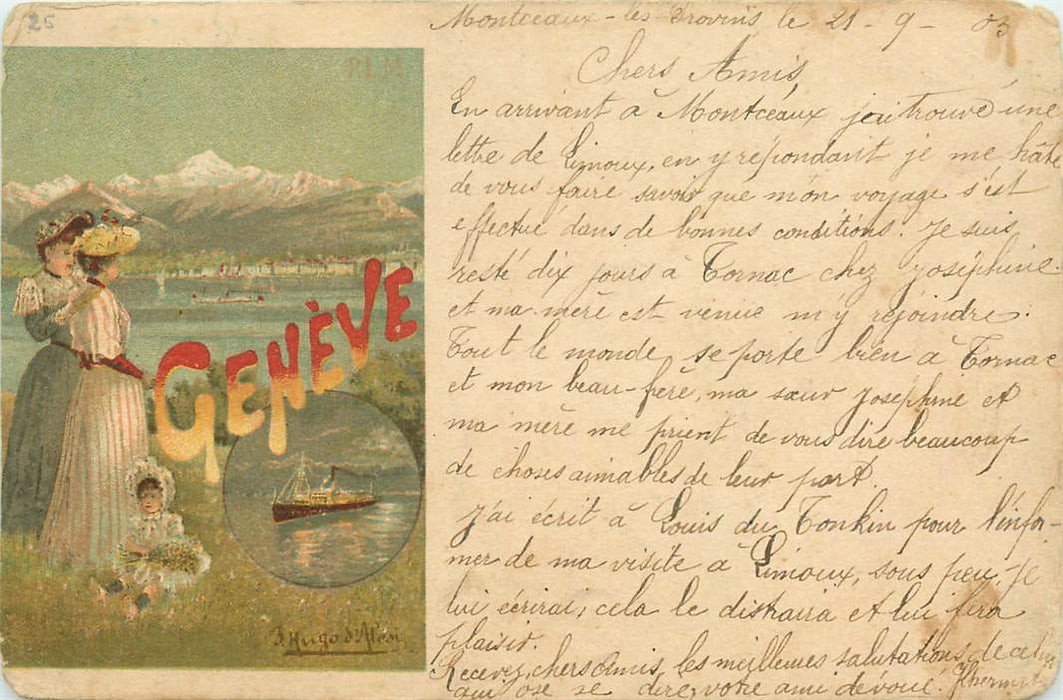 25
PLM
GENÈVE
F. Hugo d'Alési
Montceaux-les-Provins le 21-9-03
Chers Amis
En arrivant à Montceaux j'ai trouvé une
lettre de Limoux, en y répondant je me hâte
de vous faire savoir que mon voyage s'est
effectué dans de bonnes conditions. Je suis
resté dix jours à Tornac chez Joséphine
et ma mère est venue m'y rejoindre.
Tout le monde se porte bien à Tornac
et mon beau-frère, ma sœur Joséphine et
ma mère me prient de vous dire beaucoup
de choses aimables de leur part.
J'ai écrit à Louis du Tonkin pour l'infor-
mer de ma visite à Limoux, sous peu, je
lui écrirai, cela le distraira et lui fera
plaisir.
Recevez, chers Amis, les meilleures salutations de celui
qui ose se dire votre ami dévoué.